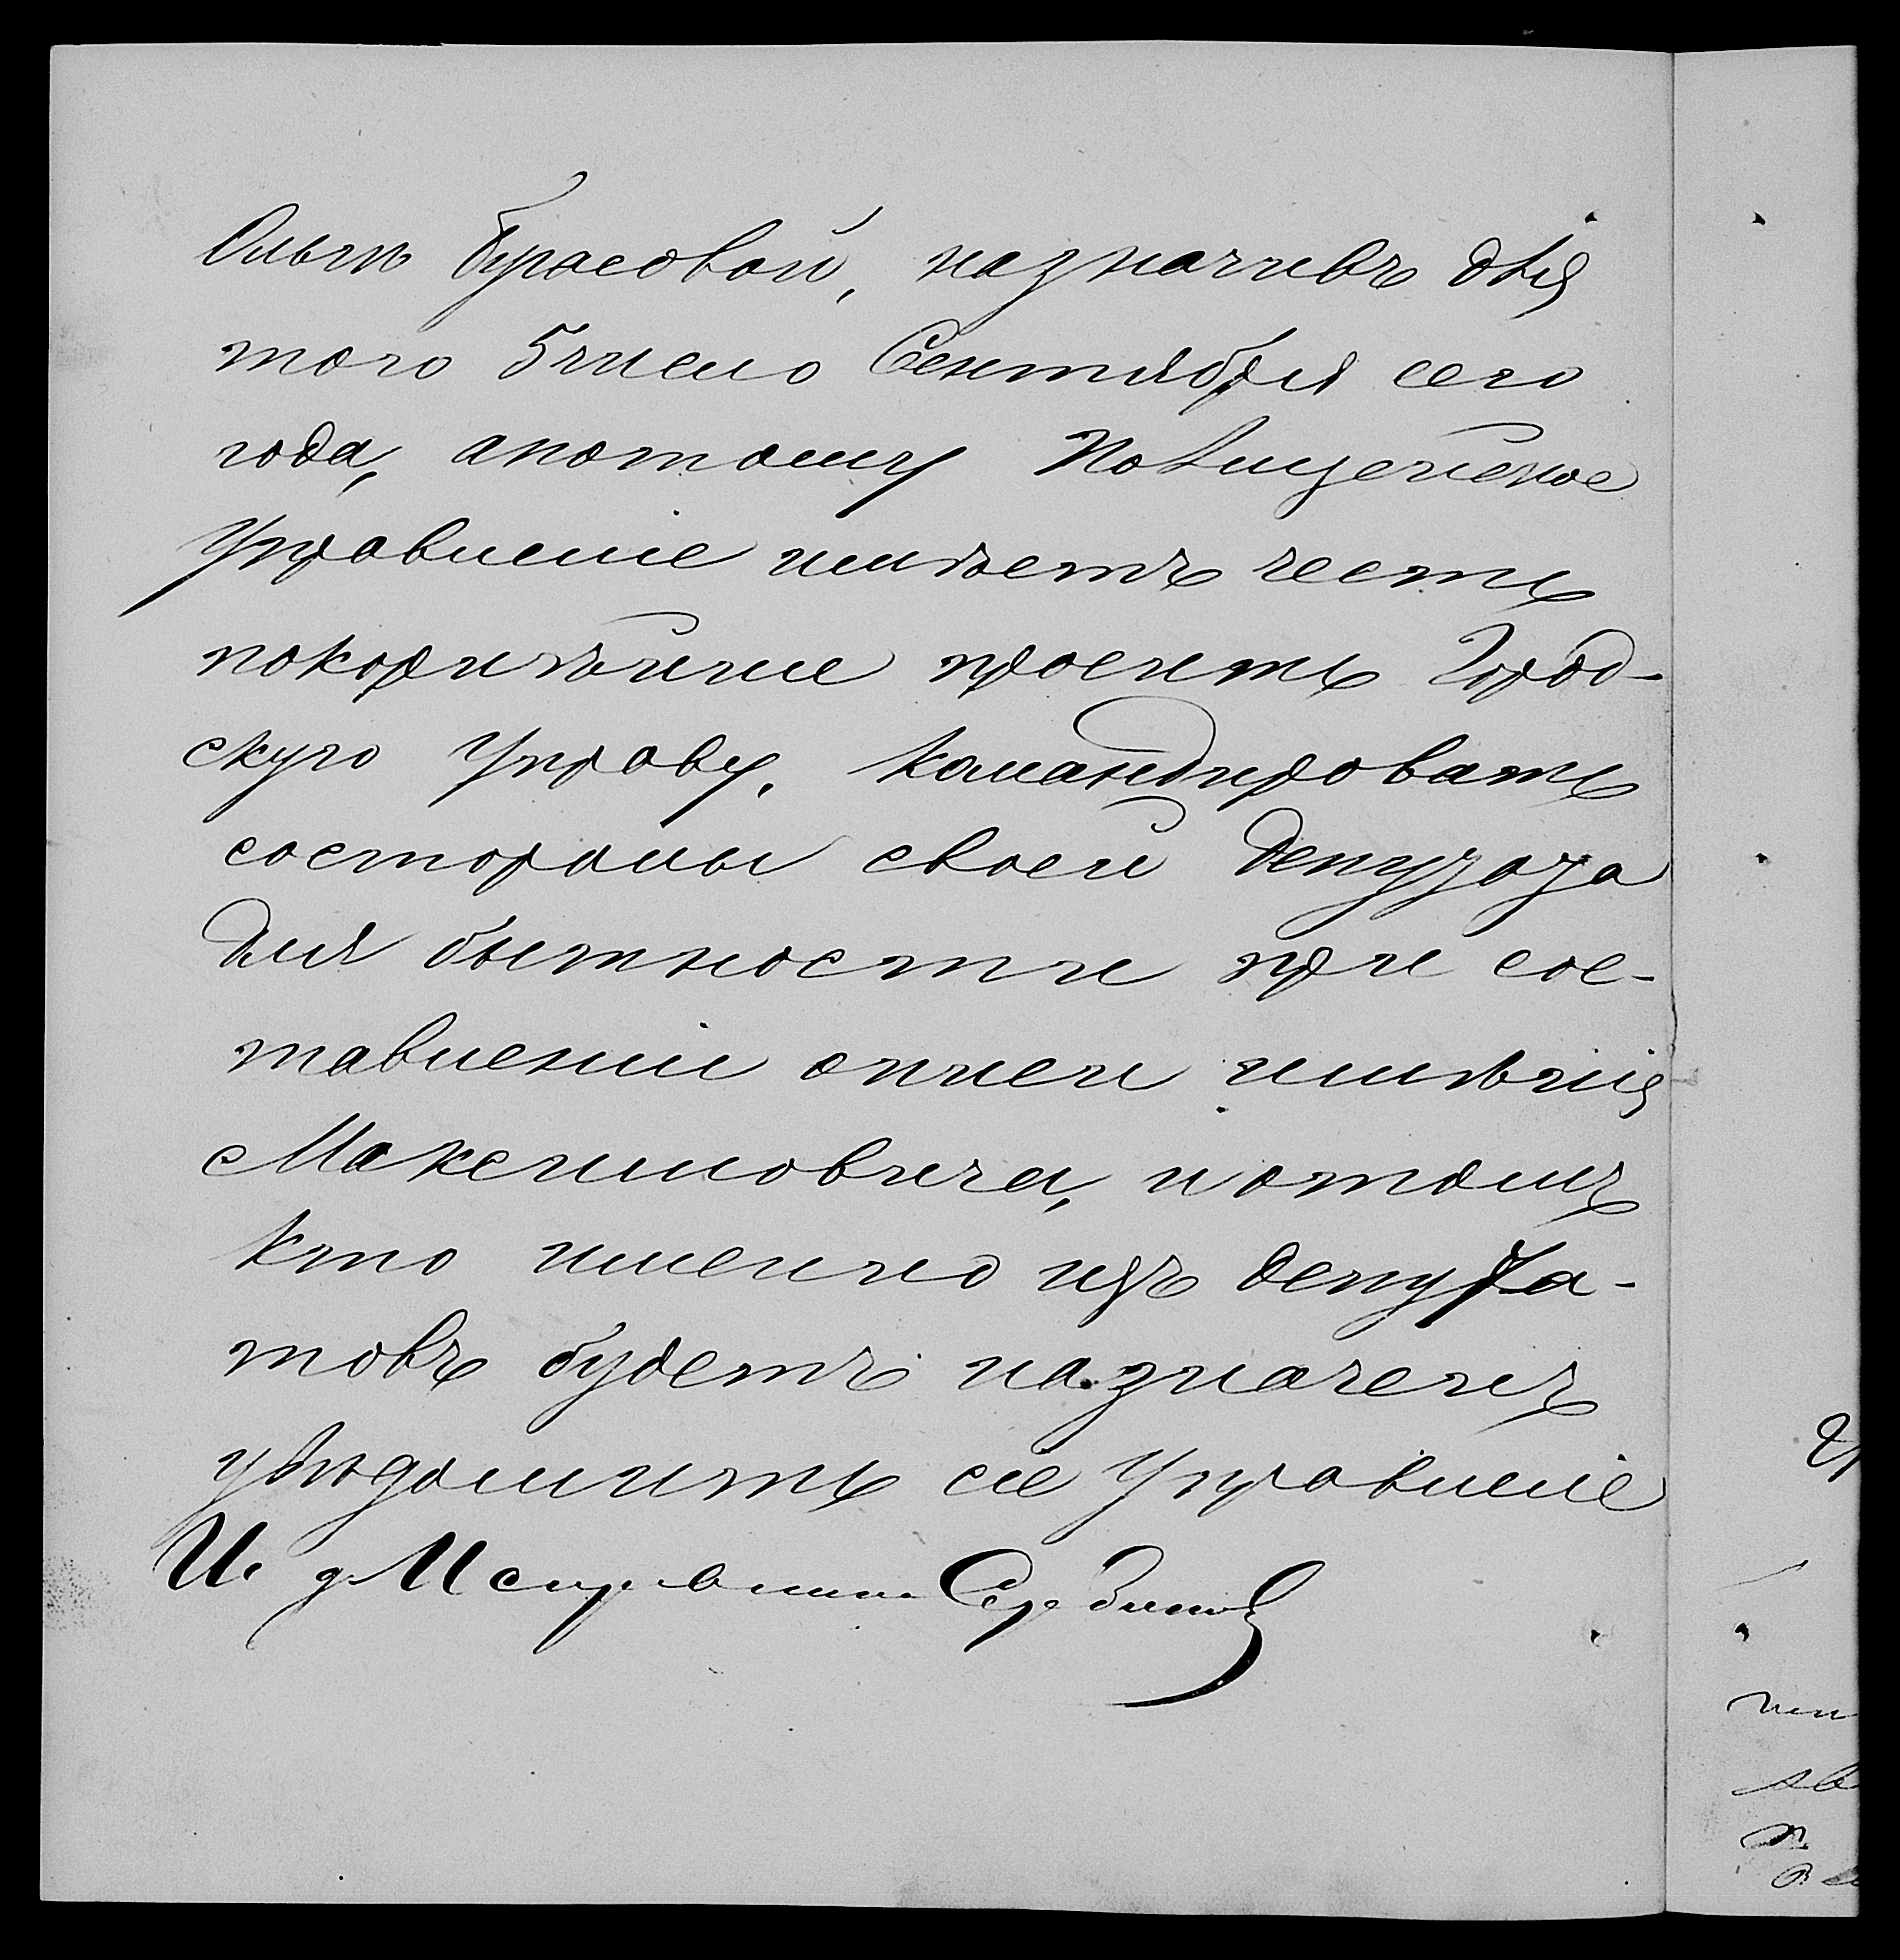 Ольги Бурасовой, назначивъ для
того 5 число Сентября сего
года, апотому Полицейское
Управленіе имѣетъ честь
покорнѣйше проситъ Город-
скую Управу, командировать
состороны своей депутата
для бытности при сос-
тавленіи описи имѣнія
Максимовича, и о томъ
кто именно изъ депута-
товъ будетъ назначенъ
увѣдомить сіе Управленіе
И. д. Исправника